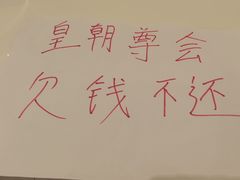 皇朝尊会
欠钱不还